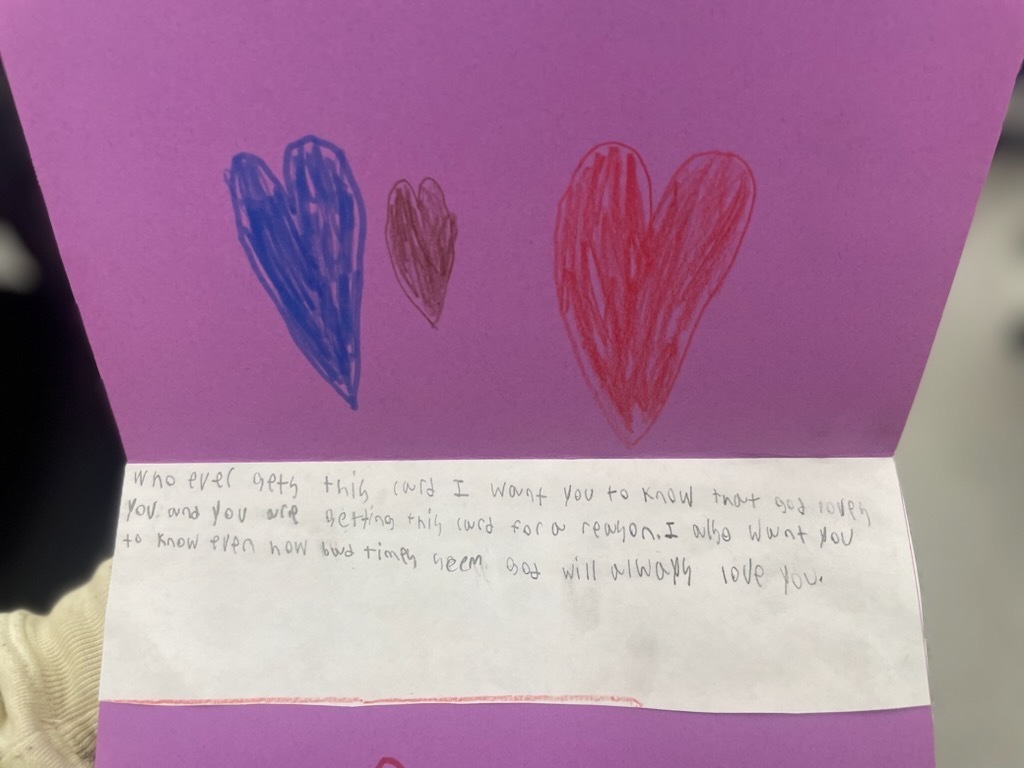 Who ever gets this card I want you to know that god loves
you and you are getting this card for a reason. I also want you
to know even how bad times seem god will always love you.